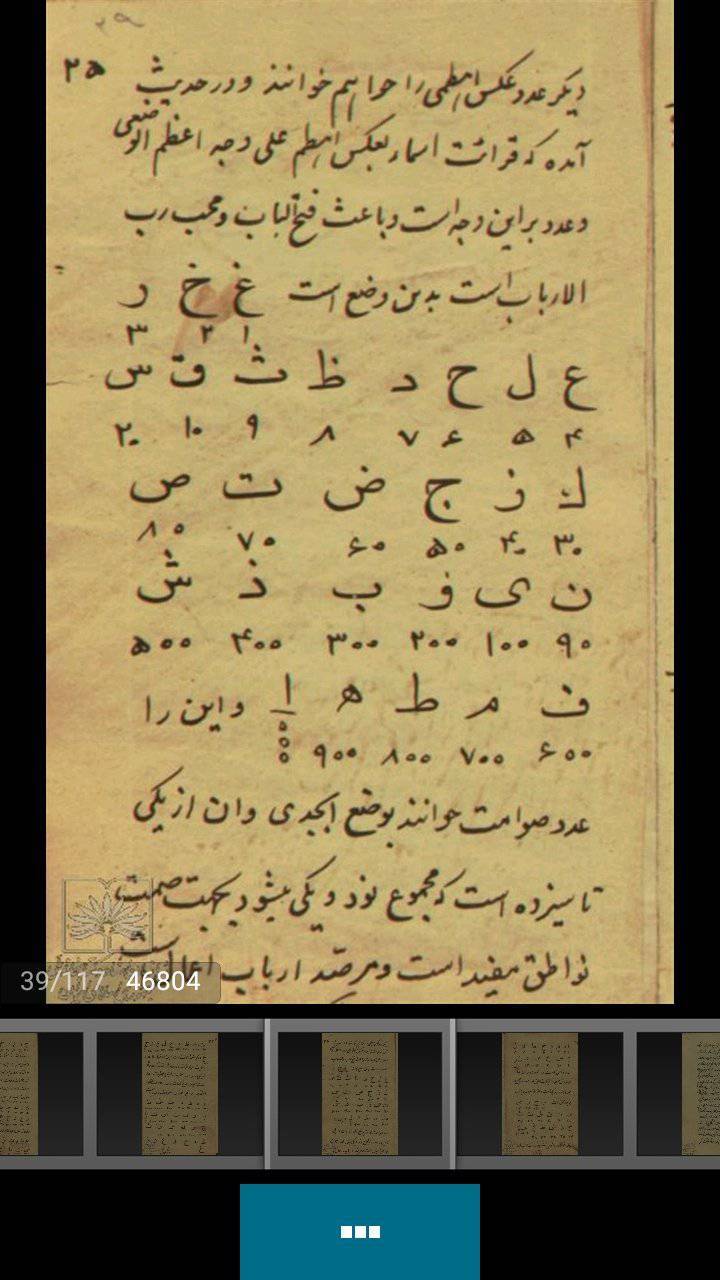 ۲۵
دیکر عدد عکس اهطمی را خوانند و در حدیث
آمده که قرائت اسماء بعکس اهطم علی وجه اعظم الوضعی
و عدد بر این وجه است و باعث فتح الباب و محب رب
الارباب است بدین وضع است غ خ ر
۱ ۲ ۳
ع ل ح د ظ ث ق س
۴ ۵ ۶ ۷ ۸ ۹ ۱۰ ۲۰
ك ز ج ض ت ص
۳۰ ۴۰ ۵۰ ۶۰ ۷۰ ۸۰
ن ی و ب ذ ش
۹۰ ۱۰۰ ۲۰۰ ۳۰۰ ۴۰۰ ۵۰۰
ف م ط ه ا و این را
۶۰۰ ۷۰۰ ۸۰۰ ۹۰۰ ۱۰۰۰
عدد صوامت خوانند بوضع ابجدی و ان از یکی
تا سیزده است که مجموع نود و یکی میشود بجهت صمت
نواطق مفید است و مرصد ارباب است
39/117 46804